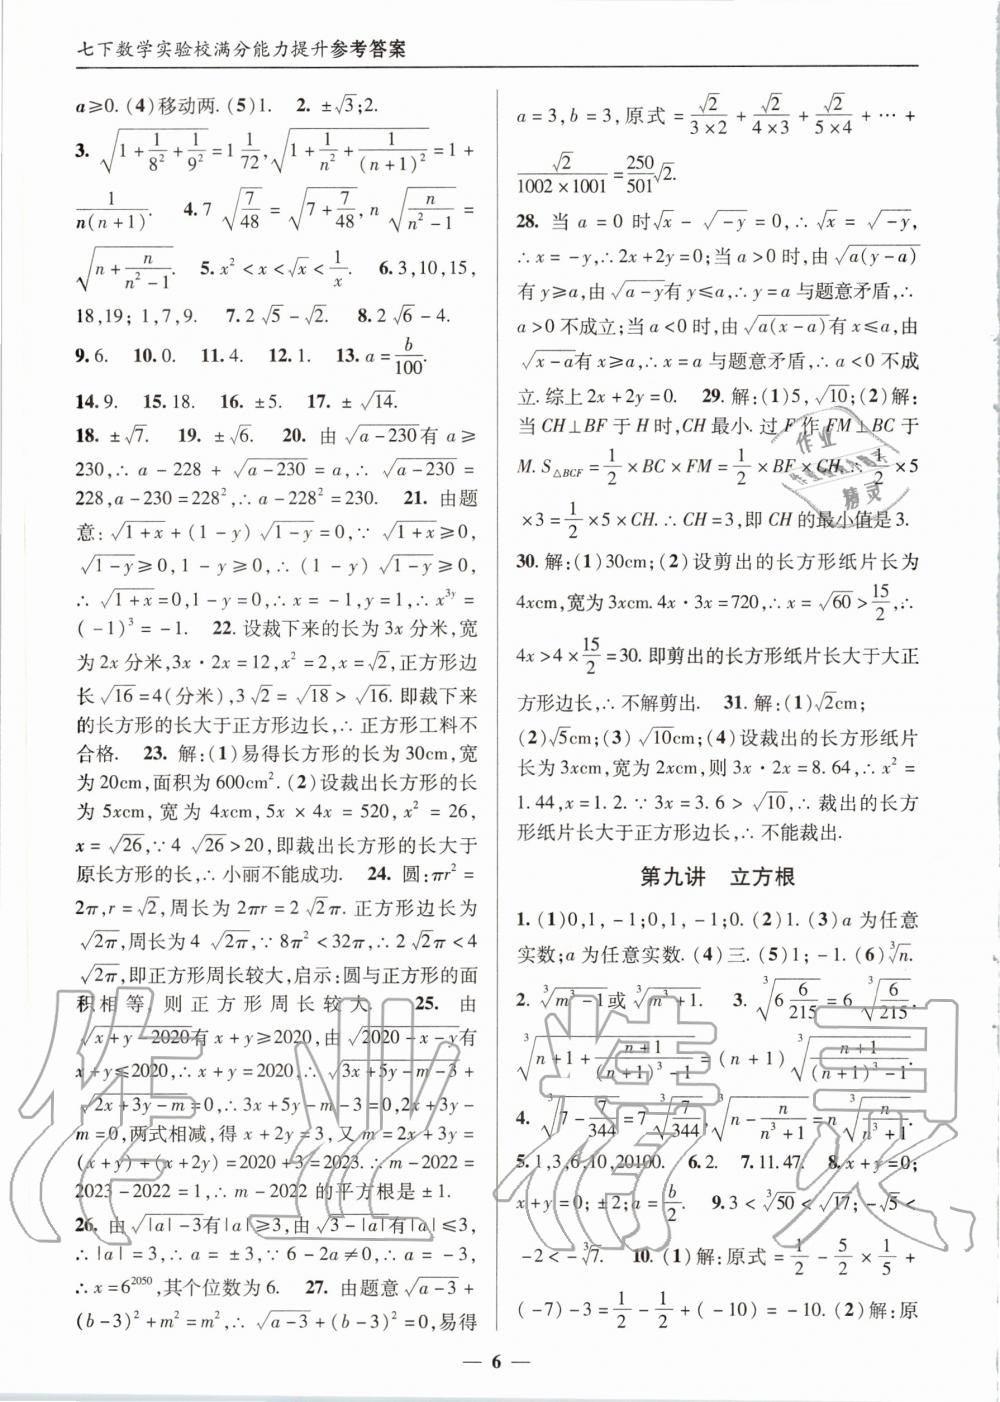 七下数学实验校满分能力提升参考答案
a≥0. (4)移动两. (5)1. 2. ±√3;2.
3. √(1+1/8²+1/9²)=1 1/72,√(1+1/n²+1/(n+1)²)=1+
1/(n(n+1)). 4. 7√(7/48)=√(7+7/48),n√(n/(n²-1))=
√(n+n/(n²-1)). 5. x²<x<√x<1/x. 6. 3,10,15,
18,19; 1,7,9. 7. 2√5-√2. 8. 2√6-4.
9. 6. 10. 0. 11. 4. 12. 1. 13. a=b/100.
14. 9. 15. 18. 16. ±5. 17. ±√14.
18. ±√7. 19. ±√6. 20. 由√(a-230)有a≥
230,∴a-228+√(a-230)=a,∴√(a-230)=
228,a-230=228²,∴a-228²=230. 21. 由题
意:√(1+x)+(1-y)√(1-y)=0,∵√(1+x)≥0,
√(1-y)≥0,1-y≥0,∴(1-y)√(1-y)≥0,
∴√(1+x)=0,1-y=0,∴x=-1,y=1,∴x^(3y)=
(-1)³=-1. 22. 设裁下来的长为3x分米,宽
为2x分米,3x·2x=12,x²=2,x=√2,正方形边
长√16=4(分米),3√2=√18>√16. 即裁下来
的长方形的长大于正方形边长,∴正方形工料不
合格. 23. 解:(1)易得长方形的长为30cm,宽
为20cm,面积为600cm². (2)设裁出长方形的长
为5xcm,宽为4xcm,5x×4x=520,x²=26,
x=√26,∵4√26>20,即裁出长方形的长大于
原长方形的长,∴小丽不能成功. 24. 圆:πr²=
2π,r=√2,周长为2πr=2√2π. 正方形边长为
√(2π),周长为4√(2π),∵8π²<32π,∴2√2π<4
√(2π),即正方形周长较大,启示:圆与正方形的面
积相等,则正方形周长较大. 25. 由
√(x+y-2020)有x+y≥2020,由√(2020-x-y)有
x+y≤2020,∴x+y=2020.∴√(3x+5y-m-3)+
√(2x+3y-m)=0;∴3x+5y-m-3=0,2x+3y-
m=0,两式相减,得x+2y=3,又m=2x+3y=
(x+y)+(x+2y)=2020+3=2023.∴m-2022=
2023-2022=1,∴m-2022的平方根是±1.
26. 由√(|a|-3)有|a|≥3,由√(3-|a|)有|a|≤3,
∴|a|=3,∴a=±3,∵6-2a≠0,∴a=-3,
∴x=6²⁰⁵⁰,其个位数为6. 27. 由题意√(a-3)+
(b-3)²+m²=m²,∴√(a-3)+(b-3)²=0,易得
a=3,b=3,原式=√2/(3×2)+√2/(4×3)+√2/(5×4)+…+
√2/(1002×1001)=250/501√2.
28. 当a=0时√x-√(-y)=0,∴√x=√(-y),
∴x=-y,∴2x+2y=0;当a>0时,由√(a(y-a))
有y≥a,由√(a-y)有y≤a,∴y=a与题意矛盾,∴
a>0不成立;当a<0时,由√(a(x-a))有x≤a,由
√(x-a)有x≥a,∴x=a与题意矛盾,∴a<0不成
立. 综上2x+2y=0. 29. 解:(1)5,√10;(2)解:
当CH⊥BF于H时,CH最小. 过F作FM⊥BC于
M. S△BCF=1/2×BC×FM=1/2×BF×CH.∴1/2×5
×3=1/2×5×CH.∴CH=3,即CH的最小值是3.
30. 解:(1)30cm;(2)设剪出的长方形纸片长为
4xcm,宽为3xcm. 4x·3x=720,∴x=√60>15/2,∴
4x>4×15/2=30. 即剪出的长方形纸片长大于大正
方形边长,∴不解剪出. 31. 解:(1)√2cm;
(2)√5cm;(3)√10cm;(4)设裁出的长方形纸片
长为3xcm,宽为2xcm,则3x·2x=8.64,∴x²=
1.44,x=1.2. ∵3x=3.6>√10,∴裁出的长方
形纸片长大于正方形边长,∴不能裁出.
第九讲 立方根
1. (1)0,1,-1;0,1,-1;0. (2)1. (3)a为任意
实数;a为任意实数. (4)三. (5)1;-1. (6)∛n.
2. ∛(m³-1)或∛(m³+1). 3. ∛(6 6/215)=6∛(6/215),
∛(n+1+(n+1)/((n+1)³-1))=(n+1)∛((n+1)/((n+1)³-1)).
4. ∛(7-7/344)=7∛(7/344),∛(n-n/(n³+1))=n∛(n/(n³+1)).
5. 1,3,6,10,20100. 6. 2. 7. 11.47. 8. x+y=0;
x+y=0; ±2;a=b/2. 9. 3<∛50<√17;-√5<
-2<-∛7. 10. (1)解:原式=1/2-5/2×1/5+
(-7)-3=1/2-1/2+(-10)=-10. (2)解:原
— 6 —
作业
精灵
作业精灵